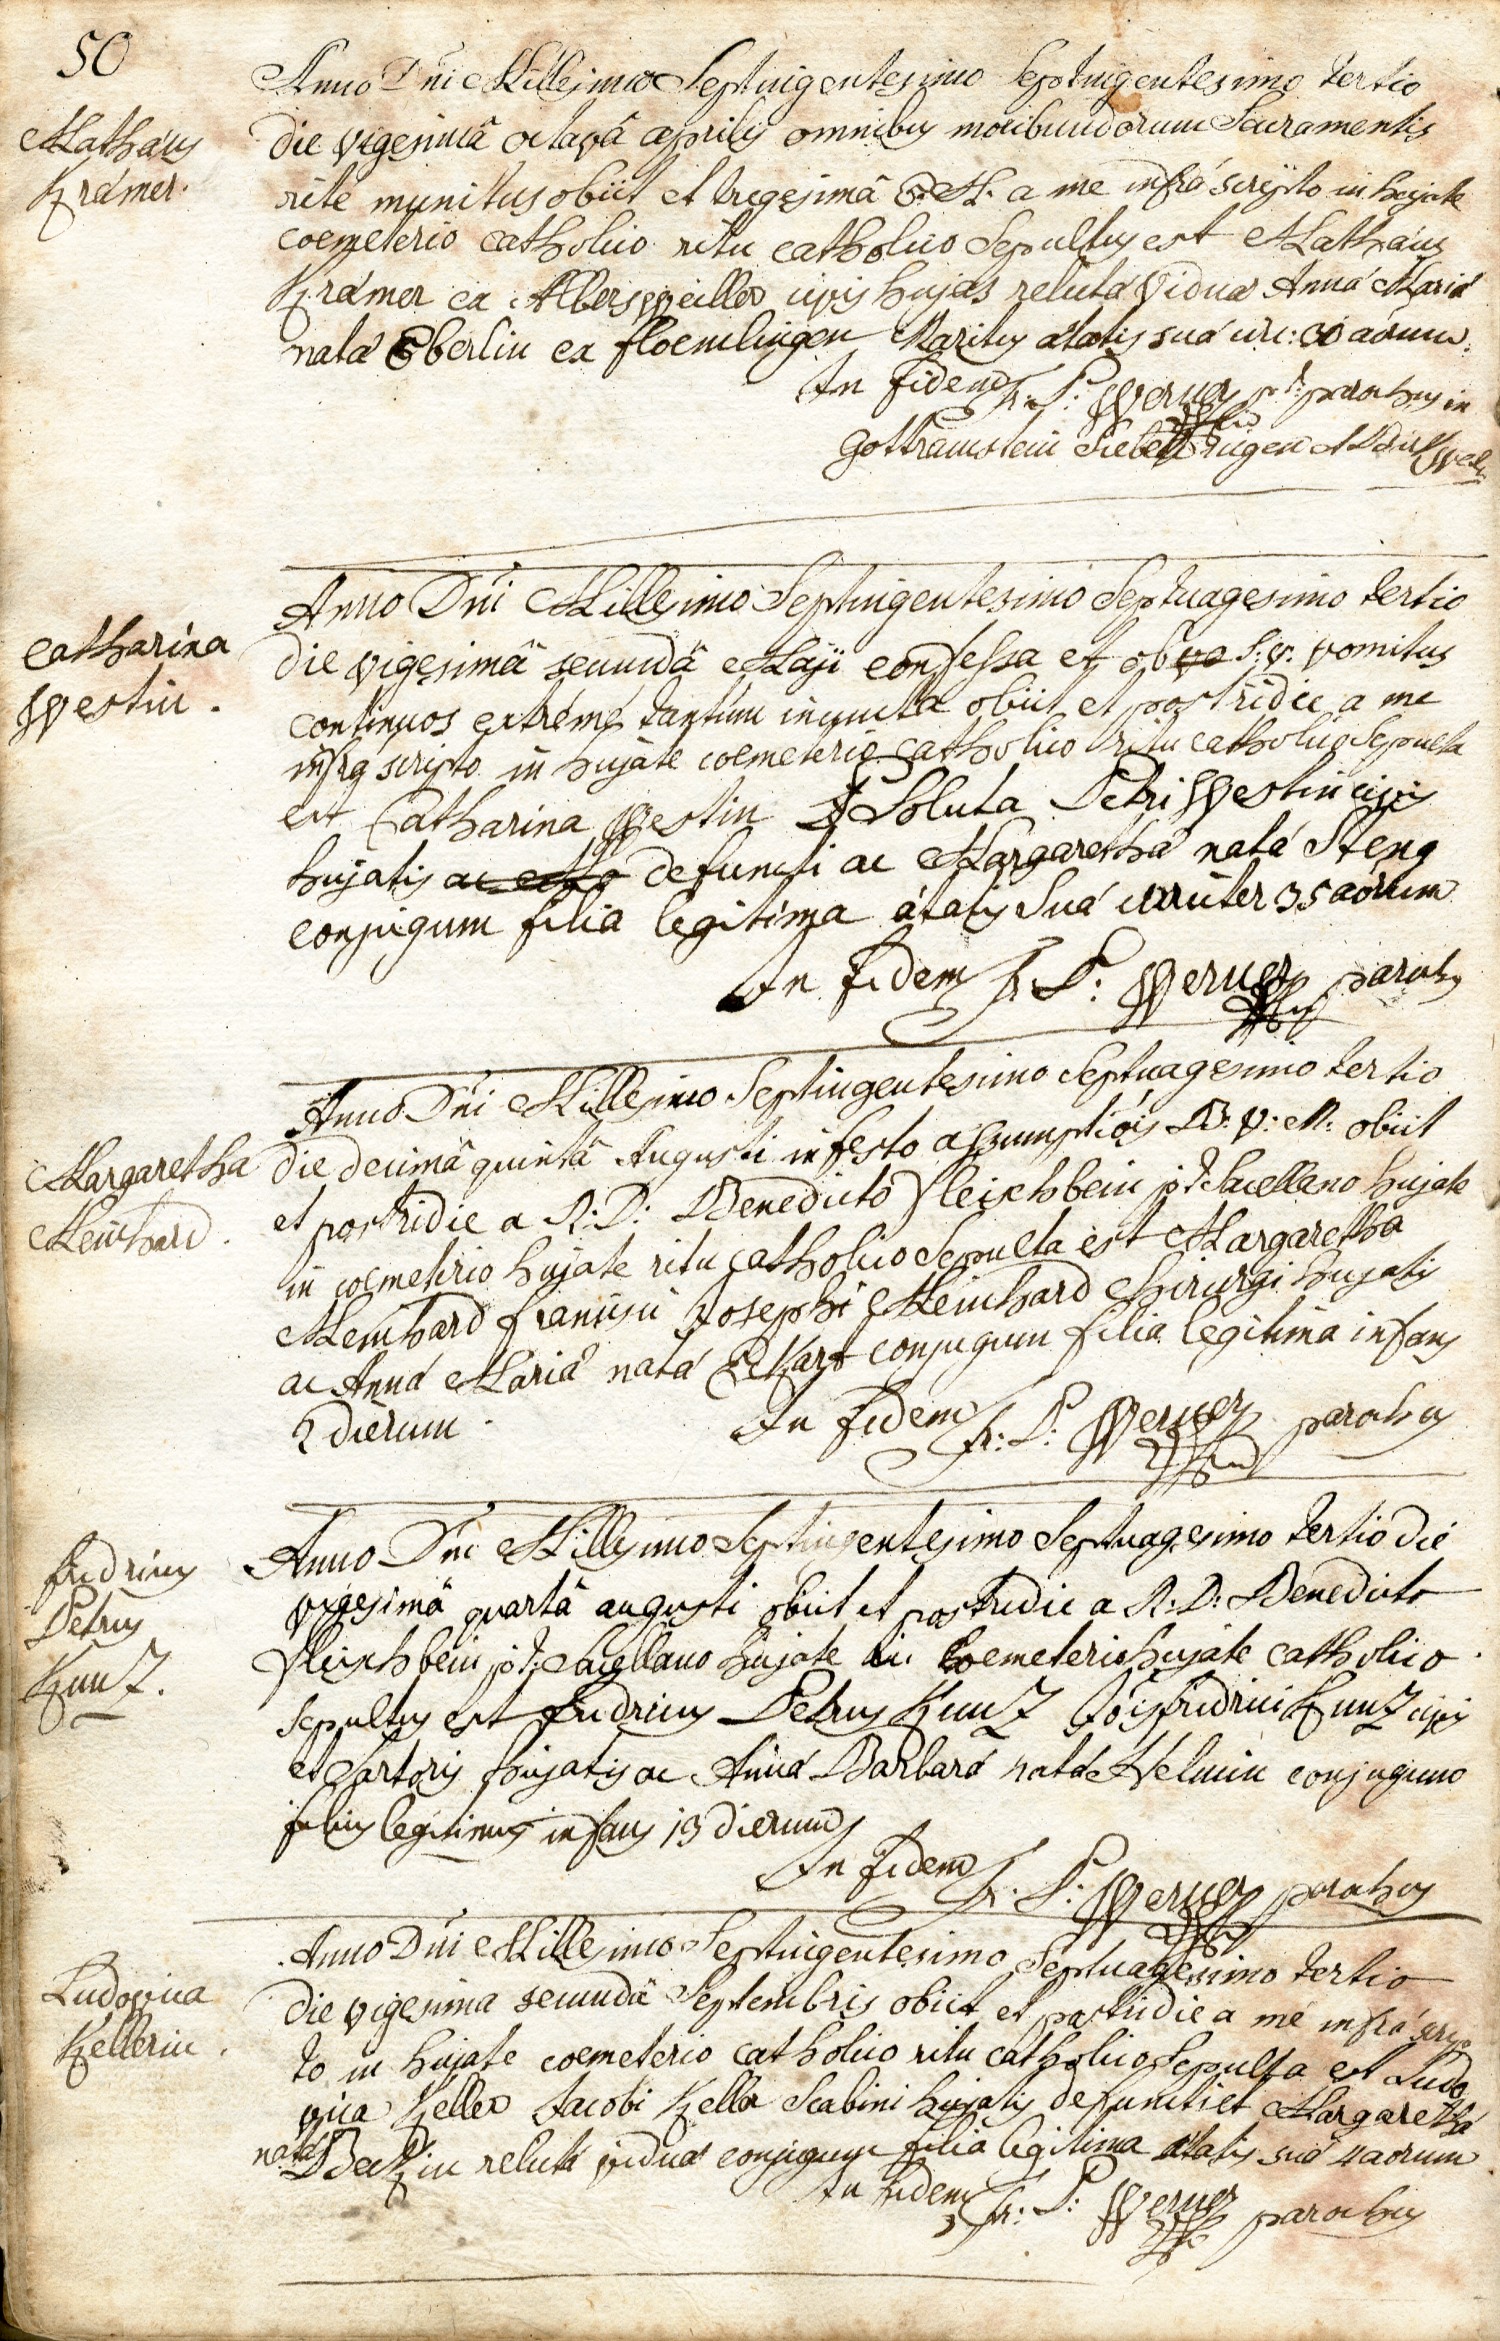 50
Anno Dni Millesimo Septuigentesimo Septuigentesimo tertio
Mathäus
Krämer.
die vigesimâ octavâ aprilis omnibus moribundorum Sacramentis
rite munitus obiit et trigesimâ a me infra scripto in hujate
coemeterio catholico ritu catholico Sepultus est Mathäus
Krämer ex Albersweiller civis hujas relicta Vidua Anna Maria
nata Eberlin ex floemlingen Maritus ætatis suæ circ: 30 aorum.
In fidem fr. P: Werner p.t. parochus in
gottramstein Siebeldingen
Catharina
Westin.
Anno Dni Millesimo Septingentesimo Septuagesimo tertio
die vigesimâ secundâ Maji confessa et ob S: v: vomitus
continuos extreme tantum inuncta obiit et postridie a me
infra scripto in hujate coemeterio catholico ritu catholico Sepulta
est Catharina Westin Soluta Petri Westin civis
hujatis defuncti ac Margaretha nata Steng
conjugum filia legitima ætatis Suæ circiter 35 aorum
In fidem fr. P: Werner parochus
Anno Dni Millesimo Septingentesimo Septuagesimo tertio
Margaretha
Meinhard.
die decimâ quintâ Augusti in festo assumptiois B: V: M: obiit
et postridie a R: D: Benedicto Fleischbein p.t. Sacellano hujate
in coemeterio hujate ritu catholico Sepulta est Margaretha
Meinhard francisci Josephi Meinhard Chirurgi hujatis
ac Anna Maria nata Ekart conjugum filia legitima infans
2 dierum.
In fidem fr: P: Werner parochus
fridricus
Petrus
Kunz.
Anno Dni Millesimo Septingentesimo Septuagesimo tertio die
vigesimâ quartâ augusti obiit et postridie a R: D: Benedicto
Fleischbein p.t. Sacellano hujate in Coemeterio hujate catholico.
sepultus est fridricus Petrus Kunz Jois fridrici Kunz civis
et Sartoris hujatis ac Anna Barbara nata Helmin conjugum
filius legitimus infans 13 dierum
In fidem fr. P: Werner parochus
Ludovica
Kellerin.
Anno Dni Millesimo Septingentesimo Septuagesimo tertio
die vigesima secundâ Septembris obiit et postridie a me infra scrip
to in hujate coemeterio catholico ritu catholico Sepulta est Ludo
vica Keller Jacobi Keller Scabini hujatis defuncti et Margaretha
nata Beckin relicta vidua conjugum filia legitima ætatis suæ 4 aorum
In fidem fr: P: Werner parochus